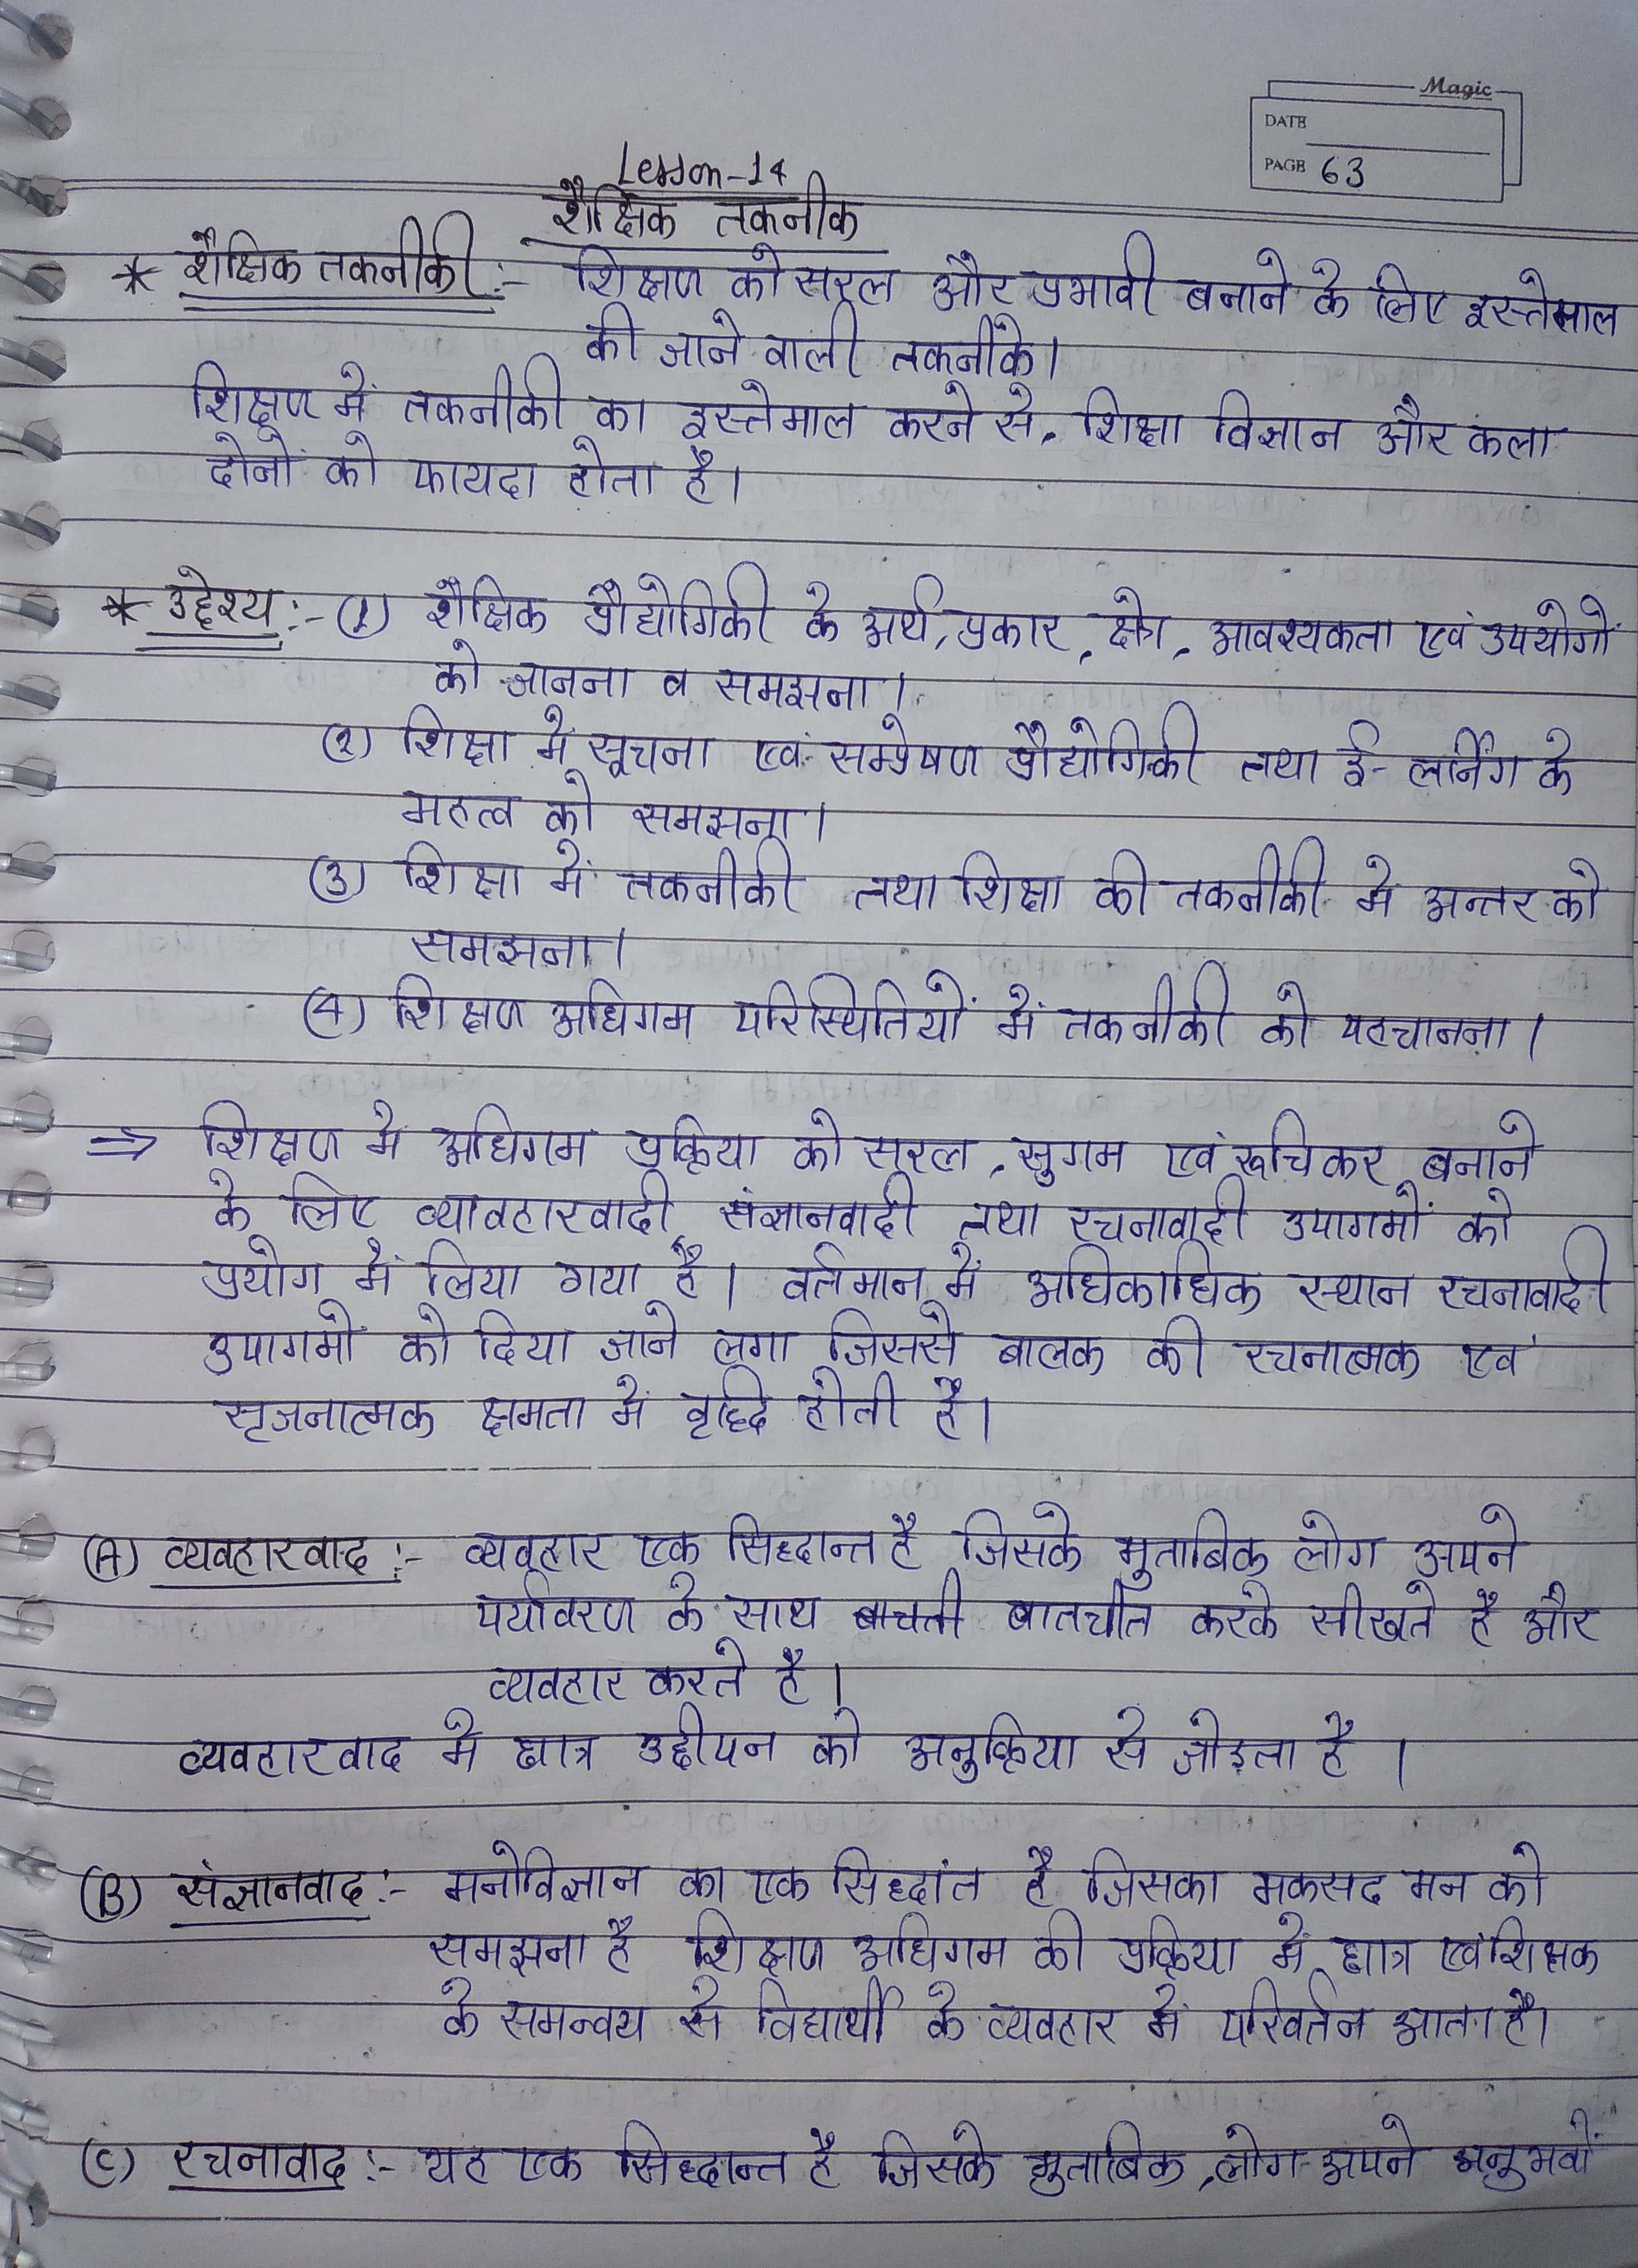 Magic
DATE
PAGE 63
Lesson-14
शैक्षिक तकनीक
* शैक्षिक तकनीकी :- शिक्षण को सरल और प्रभावी बनाने के लिए इस्तेमाल
की जाने वाली तकनीके।
शिक्षण में तकनीकी का इस्तेमाल करने से, शिक्षा विज्ञान और कला
दोनों को फायदा होता है।
* उद्देश्य :- (1) शैक्षिक प्रौद्योगिकी के अर्थ, प्रकार, क्षेत्र, आवश्यकता एवं उपयोगों
को जानना व समझना।
(2) शिक्षा में सूचना एवं सम्प्रेषण प्रौद्योगिकी तथा ई-लर्निंग के
महत्व को समझना।
(3) शिक्षा में तकनीकी तथा शिक्षा की तकनीकी में अन्तर को
समझना।
(4) शिक्षण अधिगम परिस्थितियों में तकनीकी को पहचानना।
⇒ शिक्षण में अधिगम प्रक्रिया को सरल, सुगम एवं रूचिकर बनाने
के लिए व्यावहारवादी, संज्ञानवादी तथा रचनावादी उपागमों को
प्रयोग में लिया गया है। वर्तमान में अधिकाधिक स्थान रचनावादी
उपागमो को दिया जाने लगा जिससे बालक की रचनात्मक एवं
सृजनात्मक क्षमता में वृद्धि होती है।
(A) व्यवहारवाद :- व्यवहार एक सिद्धान्त है जिसके मुताबिक लोग अपने
पर्यावरण के साथ बाचती बातचीत करके सीखते है और
व्यवहार करते है।
व्यवहारवाद में छात्र उद्दीपन को अनुक्रिया से जोड़ता है।
(B) संज्ञानवाद :- मनोविज्ञान का एक सिद्धांत है जिसका मकसद मन को
समझना है शिक्षण अधिगम की प्रक्रिया में छात्र एवं शिक्षक
के समन्वय से विद्यार्थी के व्यवहार में परिवर्तन आता है।
(C) रचनावाद :- यह एक सिद्धान्त है जिसके मुताबिक, लोग अपने अनुभवों